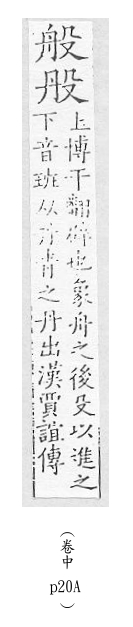 般
上博干翻辟也象舟之後殳以進之
下音班从丹青之丹出漢賈誼傳
（卷中
p20A
）